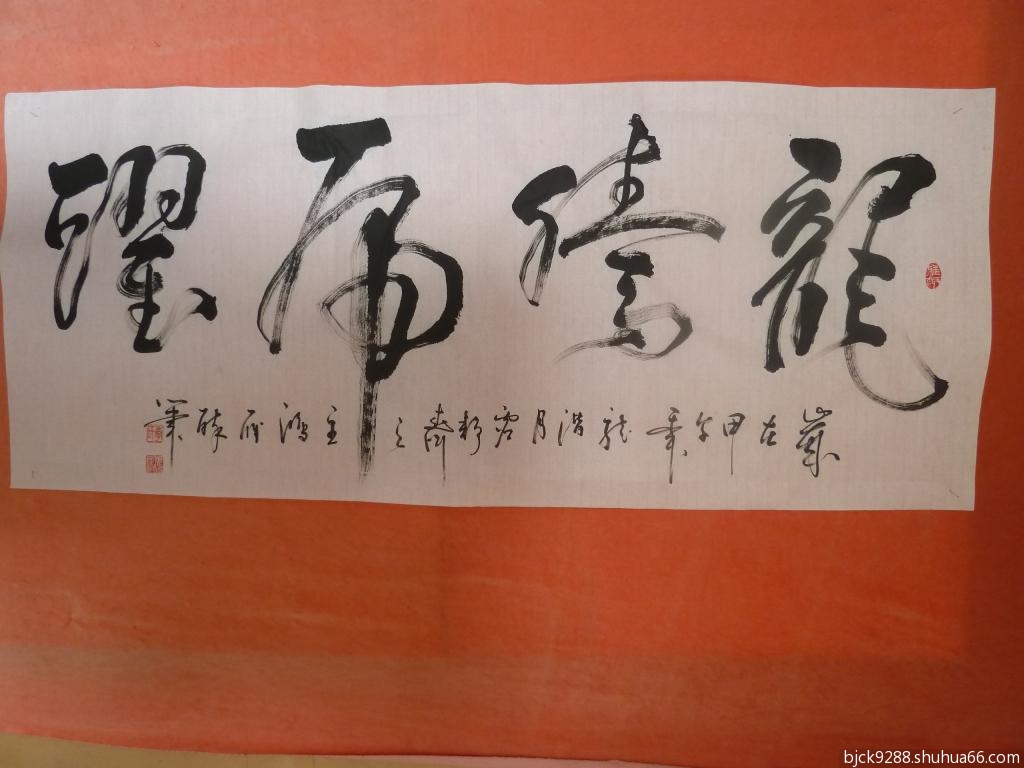 龍騰虎躍
歲在甲午年龍潛月
主鴻雁醉筆
bjck9288.shuhua66.com